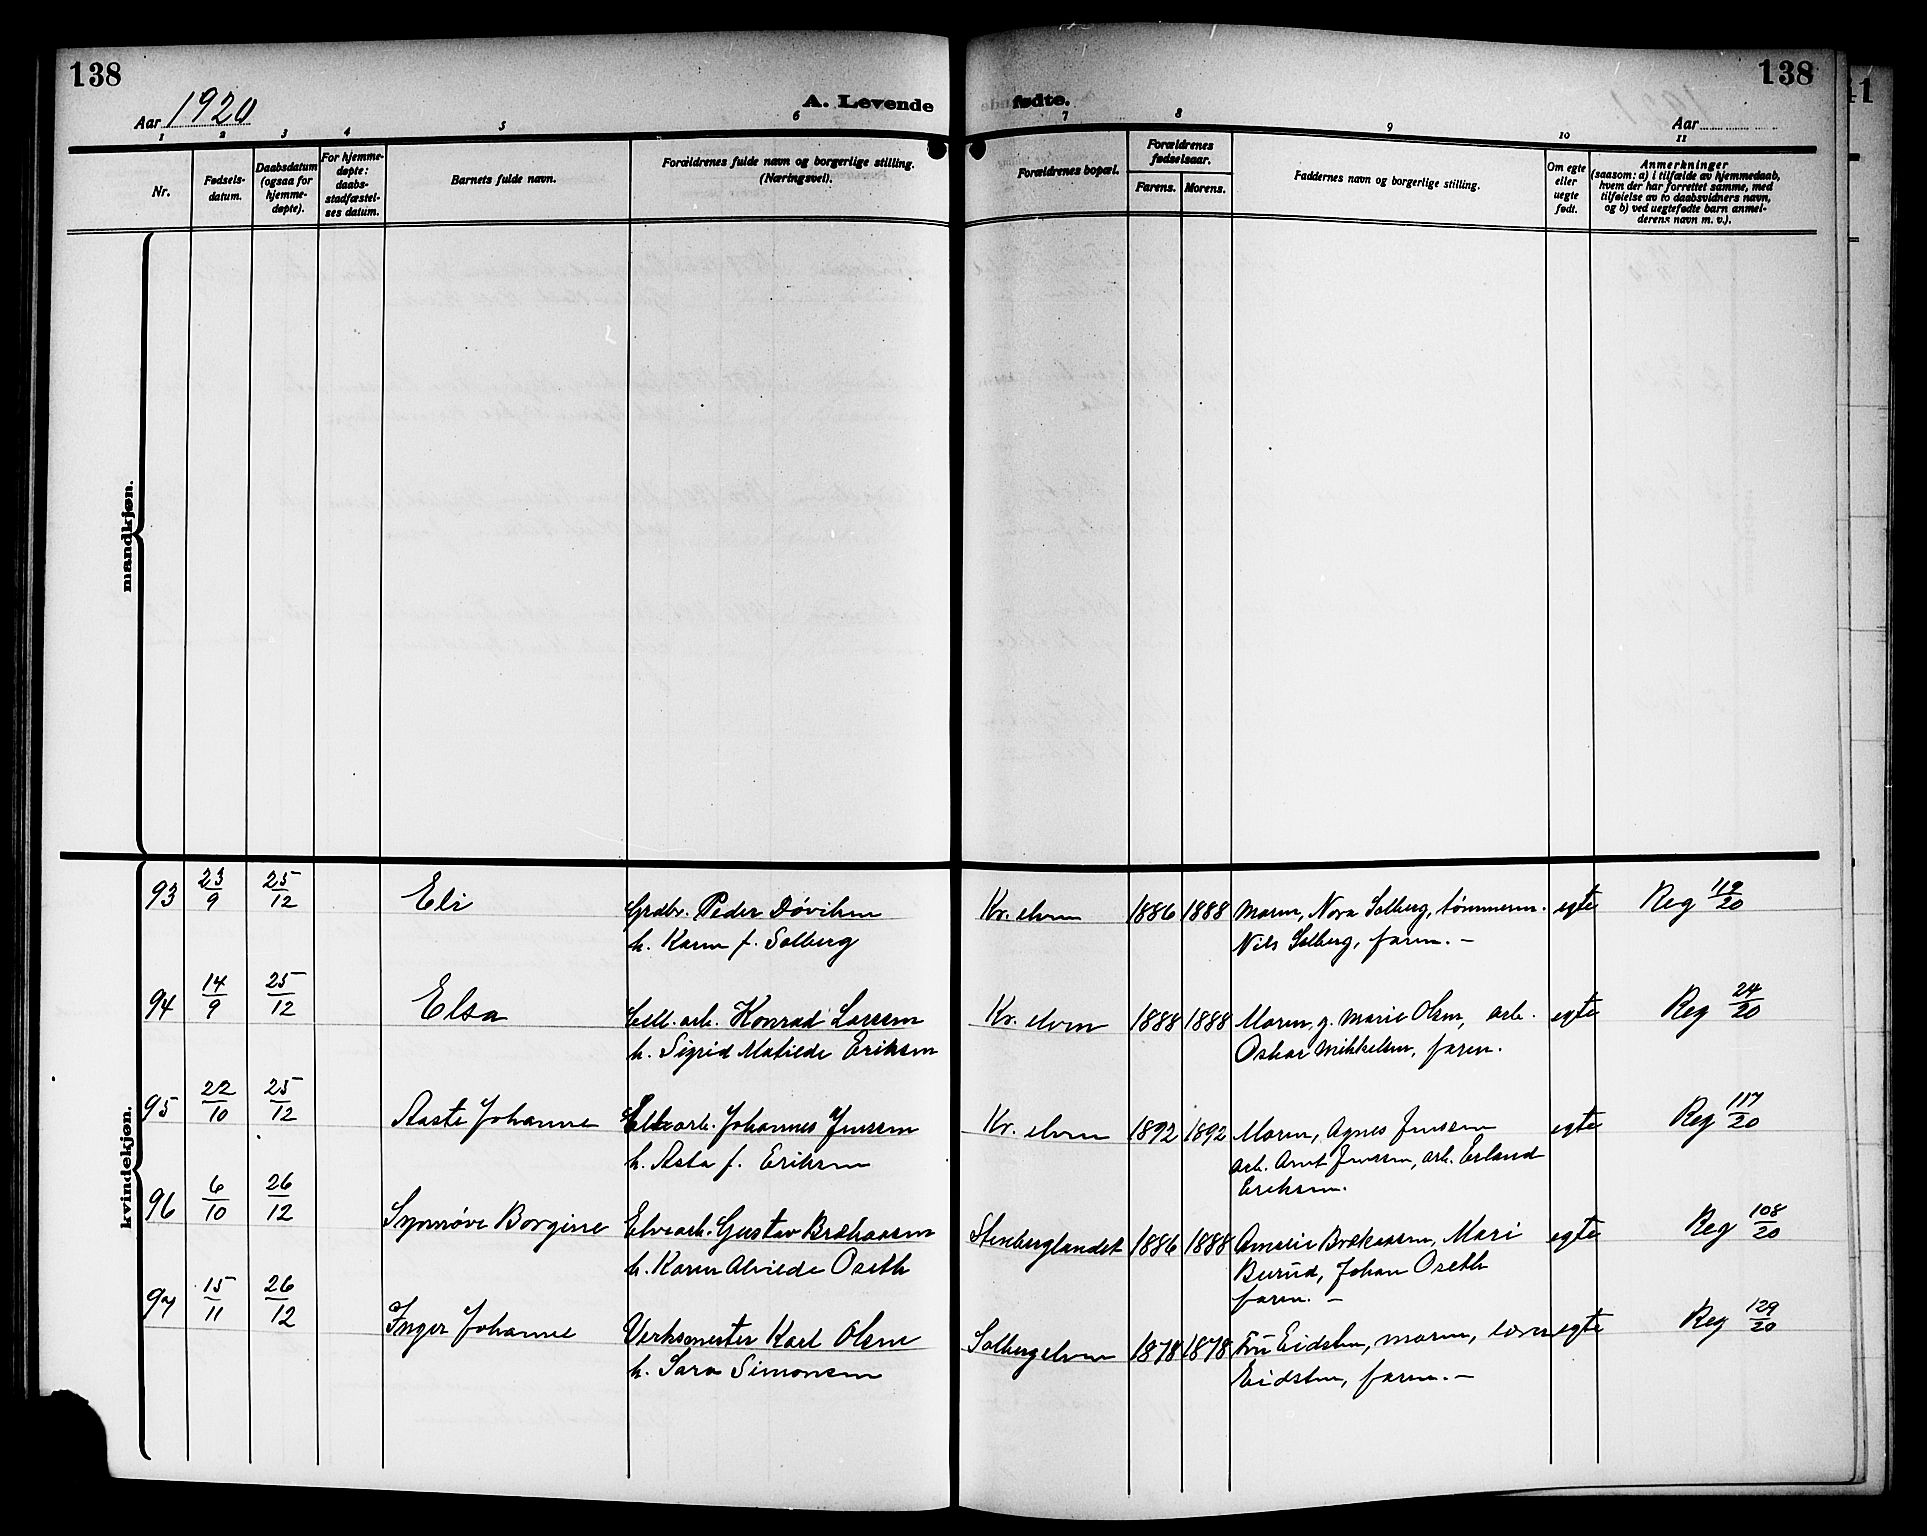 138
138
Aar 1920
A. Levende
fødte.
Aar
1 2 3 4 5 6 7 8 9 10 11
Nr.
Fødsels-
datum.
Daabsdatum
(ogsaa for
hjemme-
døpte).
For hjemme-
døpte:
daabs-
stadfæstel-
ses datum.
Barnets fulde navn.
Forældrenes fulde navn og borgerlige stilling.
(Næringsvei).
Forældrenes bopæl.
Forældrenes
fødselsaar.
Farens. Morens.
Faddernes navn og borgerlige stilling.
Om egte
eller
uegte
født.
Anmerkninger
(saasom: a) i tilfælde av hjemmedaab,
hvem der har forrettet samme, med
tilføielse av to daabsvidners navn,
og b) ved uegtefødte barn anmel-
derens navn m. v.).
mandkjøn.
kvindekjøn.
93 23/9 25/12 Eli Grdbr. Peder Døviken Kr. elven 1886 1888 Moren, Nora Solberg, tømmerm. egte Reg 119/20
h. Karen f. Solberg Nils Solberg, faren. –
94 14/9 25/12 Elsa Cell. arb. Konrad Larsen Kr. elven 1888 1888 Moren, g. Marie Olsen, arb. egte Reg 24/20
h. Sigrid Matilde Eriksen Oskar Mikkelsen, faren.
95 22/10 25/12 Aaste Johanne arb. Johannes Jenssen Kr. elven 1892 1892 Moren, Agnes Jenssen egte Reg 117/20
h. Asta f. Eriksen arb. Arnt Jenssen, arb. Erland
Eriksen.
96 6/10 26/12 Synnøve Borgine Elvearb. Gustav Brækaasen Stenberglandet 1886 1888 Amalie Brækaasen, Mari egte Reg 108/20
h. Karen Alvilde Oseth Burud, Johan Oseth
faren. –
97 15/11 26/12 Inger Johanne Verksmester Karl Olsen Solbergelven 1878 1878 Fru Eidsten, moren, lærer egte Reg 129/20
h. Sara Simonsen Eidsten, faren. –